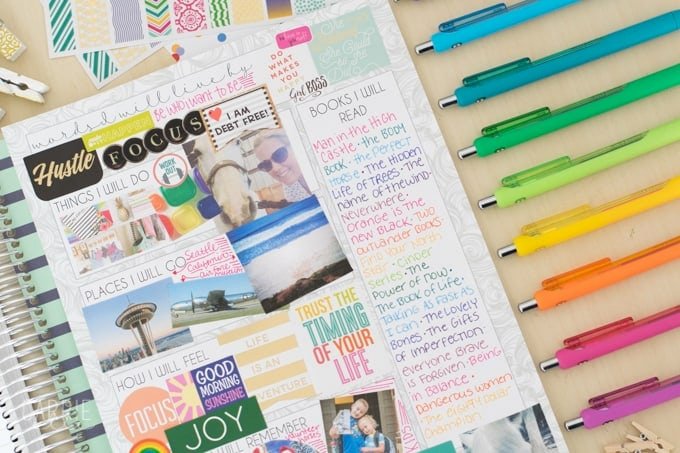 words I will live by
BE WHO I WANT TO BE
make it HAPPEN
Hustle
FOCUS
I AM
DEBT FREE!
DO
WHAT
MAKES
YOU
HAPPY
Girl BOSS
THINGS I WILL DO
WORK
OUT
PLACES I WILL GO
Seattle
California
HOW I WILL FEEL
FOCUS
GOOD
MORNING
SUNSHINE
JOY
LIFE
IS AN
ADVENTURE
TRUST THE
TIMING
OF YOUR
LIFE
I WILL REMEMBER
BOOKS I WILL
READ
Man in the High
Castle • the BODY
BOOK • the Perfect
Horse • The Hidden
Life of Trees • The
name of the wind •
Neverwhere •
Orange is the
new Black • Two
Outlander Books •
Find Your North
Star • Cinder
Series • The
Power of now •
The Book of Life •
Talking As Fast As
I Can • The Lovely
Bones • The Gifts
of Imperfection •
Everyone Brave
is Forgiven • Being
in Balance •
Dangerous Women •
The Eighty Dollar
Champion